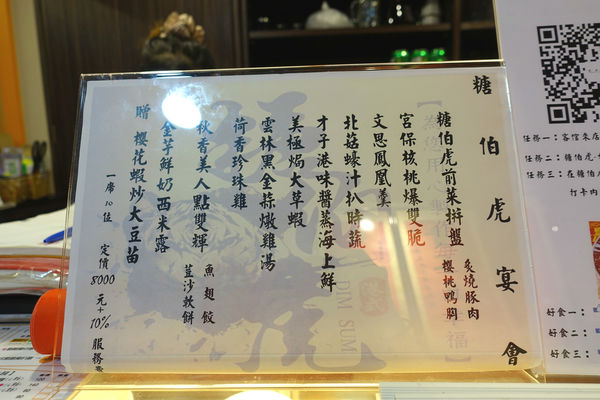 糖伯虎宴會
糖伯虎前菜拼盤
炙燒豚肉
櫻桃鴨胸
宮保核桃爆雙脆
文思鳳凰羹
北菇蠔汁扒時蔬
才子港味醬蒸海上鮮
美極焗大草蝦
雲林黑金蒜燉雞湯
荷香珍珠雞
秋香美人點雙輝
魚翅餃
荳沙軟餅
金芋鮮奶西米露
贈 櫻花蝦炒大豆苗
一席10位 定價8000元+10%服務費
DIM SUM
任務一：
任務二：
任務三：
打卡
好食一：
好食二：
好食三：